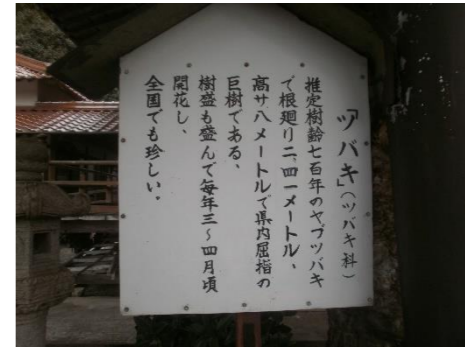 「ツバキ」（ツバキ科）
推定樹齢七百年のヤブツバキ
で根廻り二、四一メートル、
高サ八メートルで県内屈指の
巨樹である、
樹盛も盛んで毎年三〜四月頃
開花し、
全国でも珍しい。